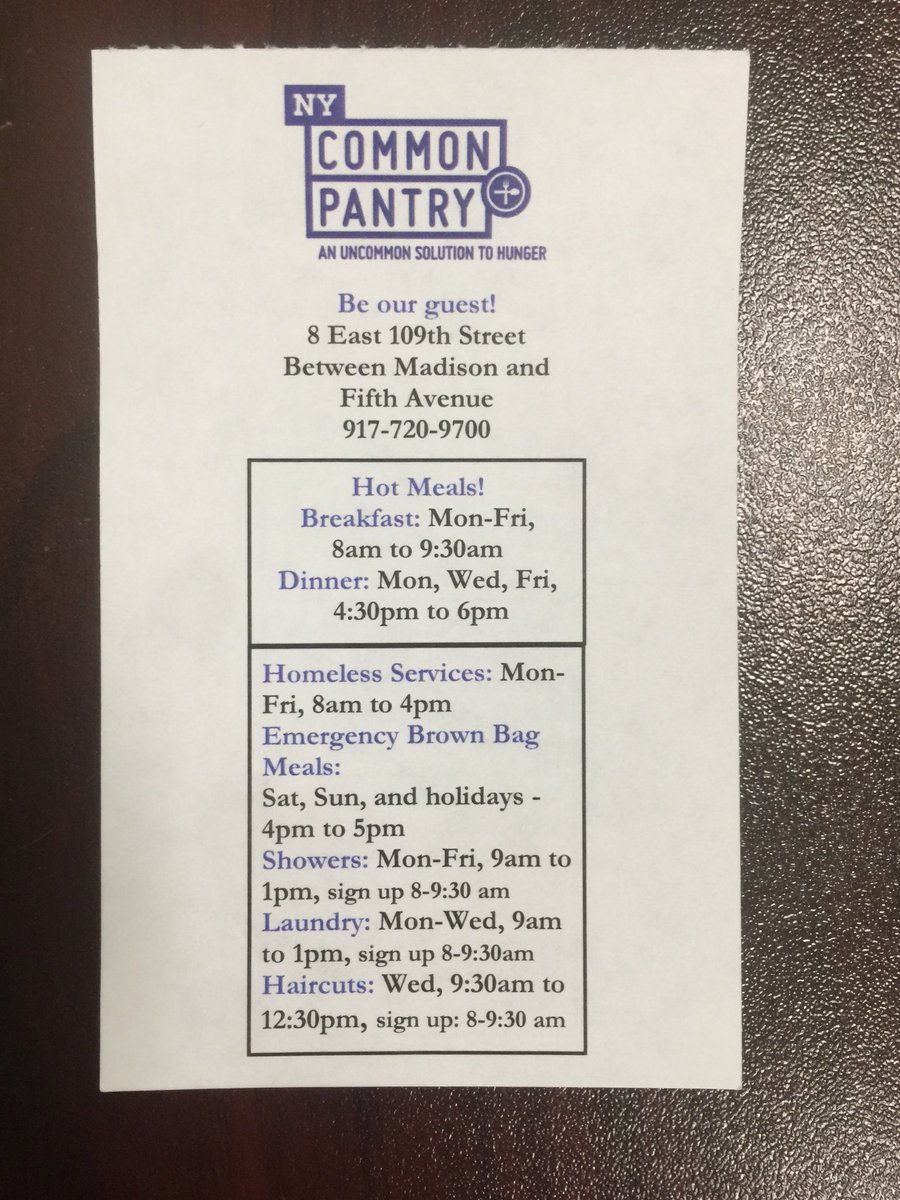 NY
COMMON
PANTRY
AN UNCOMMON SOLUTION TO HUNGER
Be our guest!
8 East 109th Street
Between Madison and
Fifth Avenue
917-720-9700
Hot Meals!
Breakfast: Mon-Fri,
8am to 9:30am
Dinner: Mon, Wed, Fri,
4:30pm to 6pm
Homeless Services: Mon-
Fri, 8am to 4pm
Emergency Brown Bag
Meals:
Sat, Sun, and holidays -
4pm to 5pm
Showers: Mon-Fri, 9am to
1pm, sign up 8-9:30 am
Laundry: Mon-Wed, 9am
to 1pm, sign up 8-9:30am
Haircuts: Wed, 9:30am to
12:30pm, sign up: 8-9:30 am